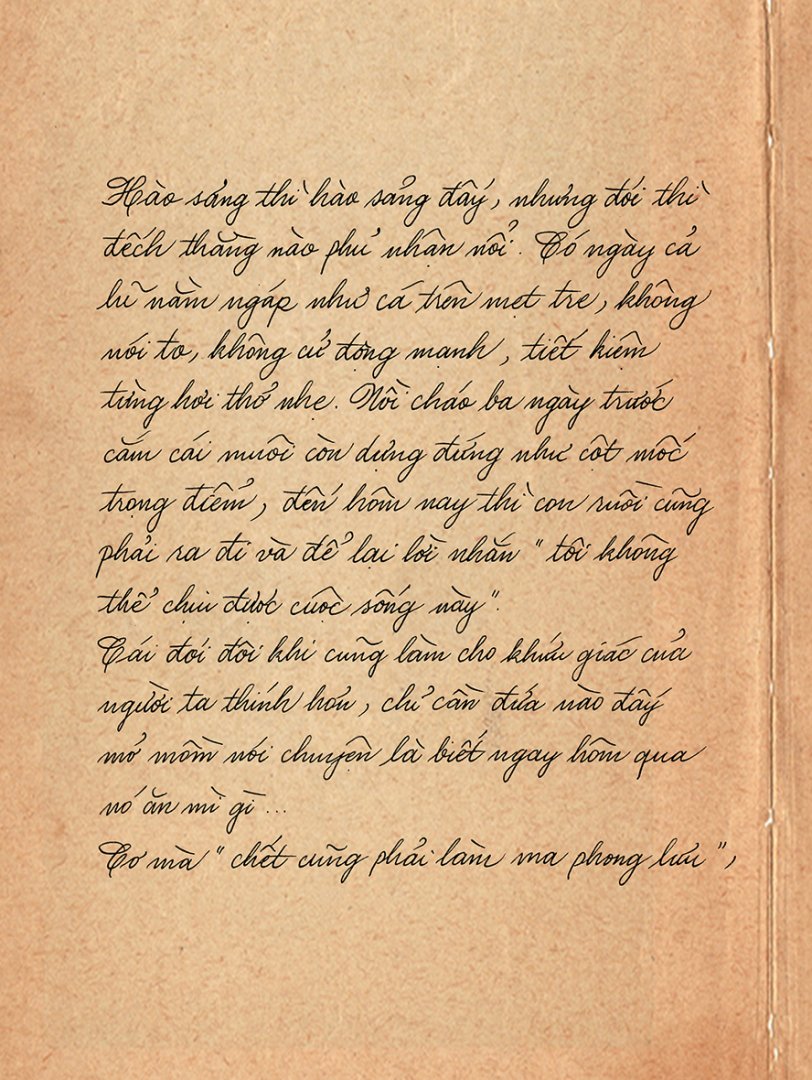 Hào sảng thì hào sảng đấy, nhưng đói thì
đếch thằng nào phủ nhận nổi. Có ngày cả
lũ nằm ngáp như cá trên mẹt tre, không
nói to, không cử động mạnh, tiết kiệm
từng hơi thở nhẹ. Nồi cháo ba ngày trước
cắm cái muôi còn dựng đứng như cột mốc
trọng điểm, đến hôm nay thì con ruồi cũng
phải ra đi và để lại lời nhắn "tôi không
thể chịu được cuộc sống này".
Cái đói đôi khi cũng làm cho khứu giác của
người ta thính hơn, chỉ cần đứa nào đấy
mở mồm nói chuyện là biết ngay hôm qua
nó ăn mì gì...
Cơ mà "chết cũng phải làm ma phong lưu",